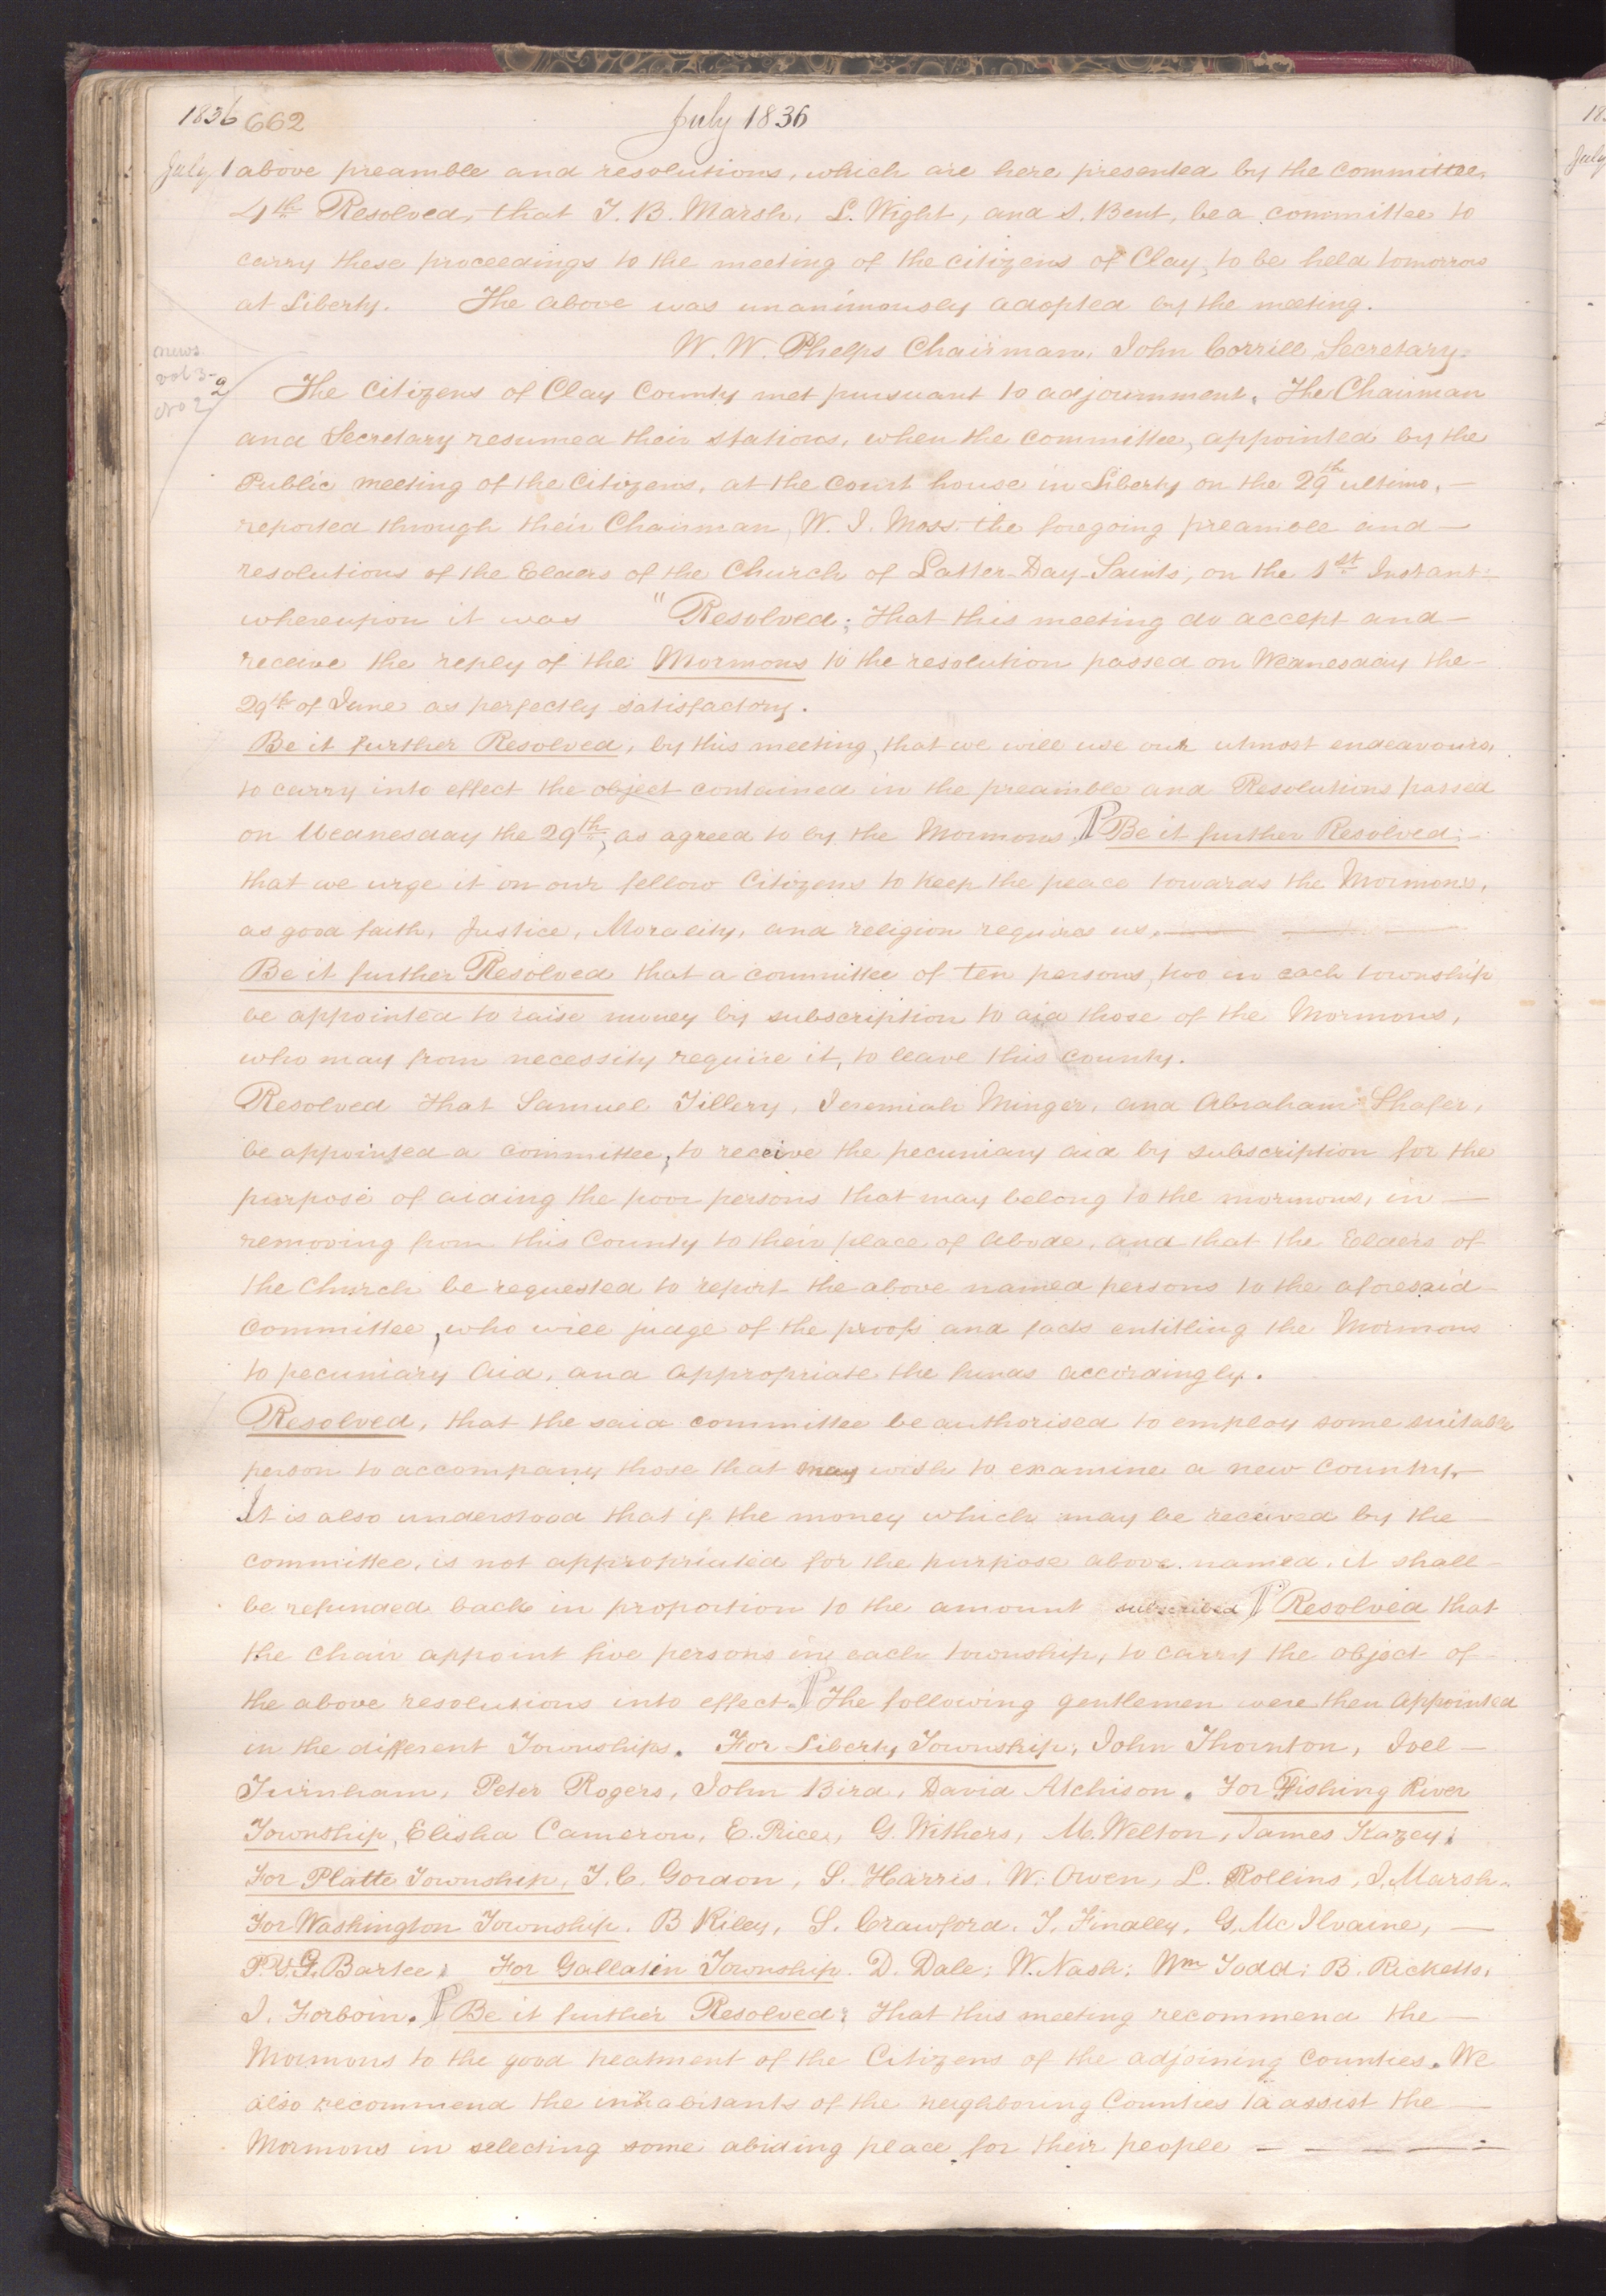 1836 662 July 1836
July 1 above preamble and resolutions, which are here presented by the committee,
4th Resolved, that T. B. Marsh, L. Wight, and S. Bent, be a committee to
carry these proceedings to the meeting of the citizens of Clay, to be held tomorrow
at Liberty. The above was unanimously adopted by the meeting.
W. W. Phelps Chairman, John Corrill, Secretary.
news
vol 3-
No 2
2
The Citizens of Clay County met pursuant to adjournment. The Chairman
and Secretary resumed their stations, when the committee, appointed by the
Public meeting of the Citizens, at the Court house in Liberty on the 29th ultimo, —
reported through their Chairman, W. J. Moss. the foregoing preamble and —
resolutions of the Elders of the Church of Latter-Day-Saints, on the 1st Instant:
whereupon it was "Resolved: That this meeting do accept and —
receive the reply of the Mormons to the resolution passed on Wednesday the —
29th of June as perfectly satisfactory.
Be it further Resolved, by this meeting, that we will use our utmost endeavours,
to carry into effect the object contained in the preamble and Resolutions passed
on Wednesday the 29th, as agreed to by the Mormons. ¶ Be it further Resolved; —
that we urge it on our fellow Citizens to keep the peace towards the Mormons,
as good faith, Justice, Morality, and religion requires us. — —
Be it further Resolved that a committee of ten persons, two in each township
be appointed to raise money by subscription to aid those of the Mormons,
who may from necessity require it, to leave this county.
Resolved that Samuel Tillery, Jeremiah Minger, and Abraham Shafer,
be appointed a committee, to receive the pecuniary aid by subscription for the
purpose of aiding the poor persons that may belong to the mormons, in —
removing from this County to their place of Abode, and that the Elders of
the Church be requested to report the above named persons to the aforesaid
Committee, who will judge of the proofs and facts entitling the Mormons
to pecuniary Aid, and appropriate the funds accordingly.
Resolved, that the said committee be authorised to employ some suitable
person to accompany those that may wish to examine a new Country, —
It is also understood that if the money which may be received by the —
committee, is not appropriated for the purpose above named, it shall —
be refunded back in proportion to the amount subscribed ¶ Resolved that
the Chair appoint five persons in each township, to carry the object of
the above resolutions into effect. ¶ The following gentlemen were then Appointed
in the different Townships. For Liberty Township, John Thornton, Joel —
Turnham, Peter Rogers, John Bird, David Atchison. For Fishing River
Township, Elisha Cameron, E. Price, G. Withers, M. Welton, James Kazey;
For Platte Township, T. C. Gordon, S. Harris, W. Owen, L. Rollins, J. Marsh.
For Washington Township. B Riley, S. Crawford. T. Findley, G. McIlvaine, —
P. Y. G. Bartee; For Gallatin Township. D. Dale; W. Nash; Wm Todd; B. Ricketts,
J. Forboin. ¶ Be it further Resolved; That this meeting recommend the —
Mormons to the good treatment of the Citizens of the adjoining Counties. We
also recommend the inhabitants of the neighboring Counties to assist the —
Mormons in selecting some abiding place for their people — — — — —